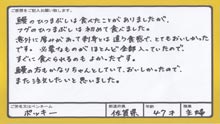 ご感想をご記入お願い致します。
鰻のひつまぶしは食べたことがありましたが、
フグのひつまぶしは初めて食べました。
意外に厚みがあって刺身とは違う感想で、とてもおいしかった
です。必要なものがほとんど全部入っていたので、
すぐに食べられるのもよかったです。
鰻の方もかなりちゃんとしていて、おいしかったので、
また注文したいと思いました。
ポッキー
佐賀県
年齢 47才
主婦